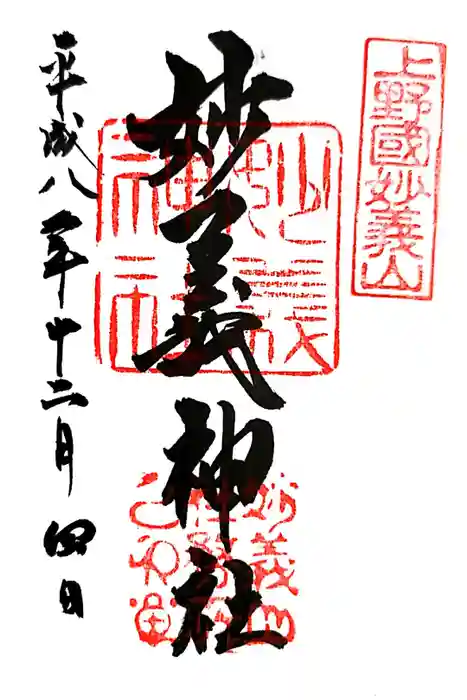 上野國妙義山
妙義神社
妙義神社
妙義山
平成八年十二月四日